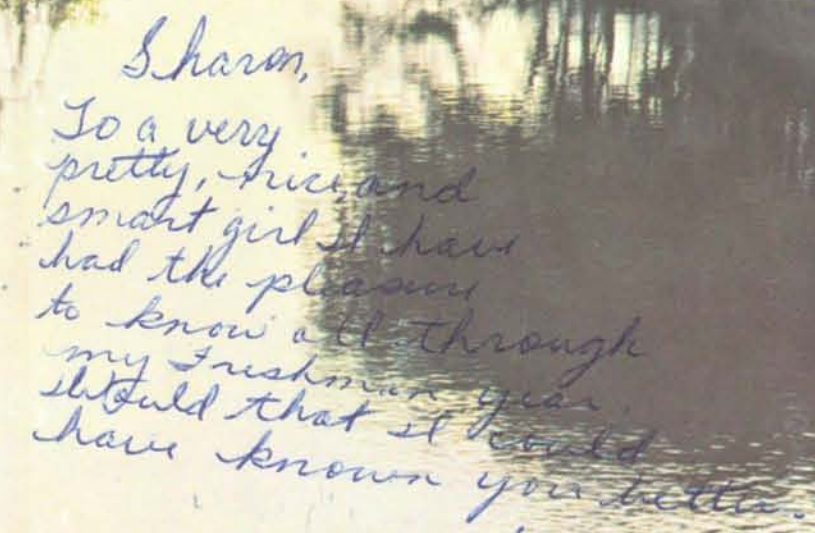 Sharon,
To a very
pretty, nice, and
smart girl I have
had the pleasure
to know all through
my Freshman year.
would that I could
have known you better.